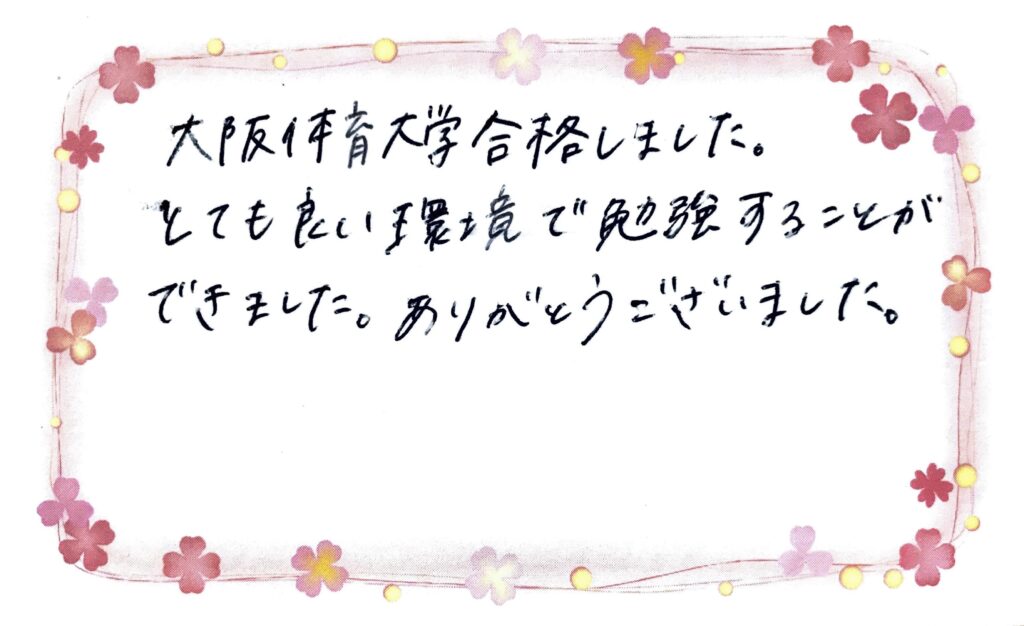 大阪体育大学合格しました。
とても良い環境で勉強することが
できました。ありがとうございました。